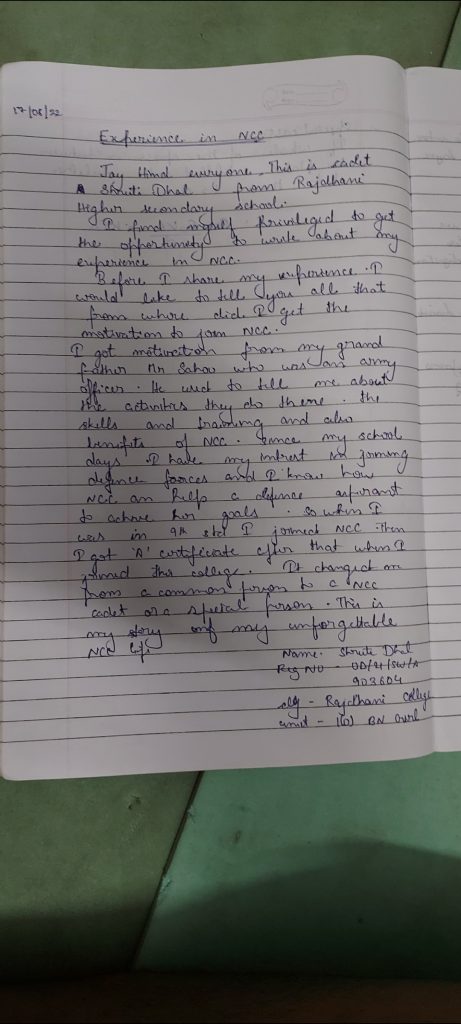 17/08/22
Experience in NCC
Jay Hind everyone. This is cadet
Shruti Dhal from Rajdhani
Higher secondary school.
I find myself privileged to get
the opportunity to write about my
experience in NCC.
Before I share my experience. I
would like to tell you all that
from where did I get the
motivation to join NCC.
I got motivation from my grand
father Mr Sahoo who was an army
officer. He used to tell me about
the activities they do there. the
skills and training and also
benefits of NCC. Since my school
days I have my intrest in joining
defence forces and I know how
NCC can help a defence aspirant
to achive her goals. so when I
was in 9th std I joined NCC then
I got 'A' certificate after that when I
joined this college. It changed me
from a common person to a NCC
cadet or a special person. This is
my story of my unforgettable
NCC life
Name: Shruti Dhal
Reg No - OD/21/SW/A
903604
clg - Rajdhani college
unit - 1(O) BN